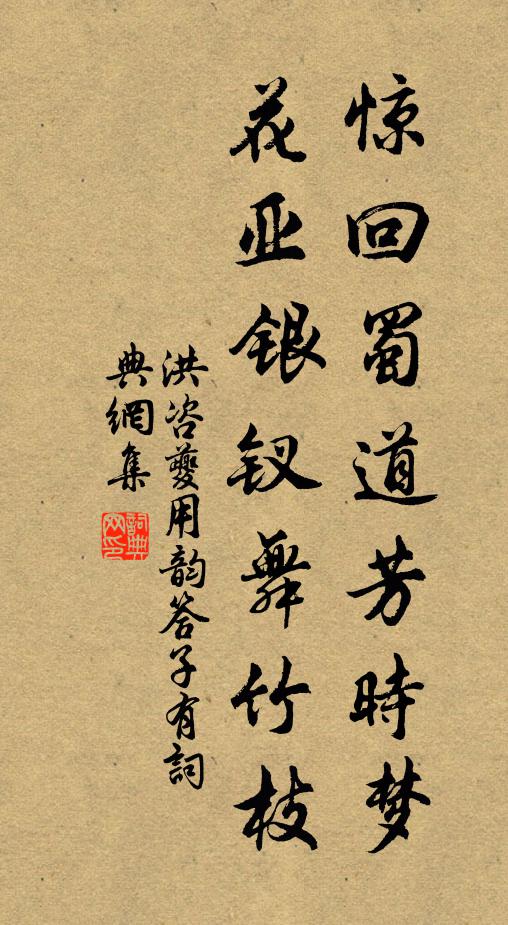 惊回蜀道芳時梦
花亚银钗舞竹枝
洪咨夔用韵答子有詞
典網集
詞典网印